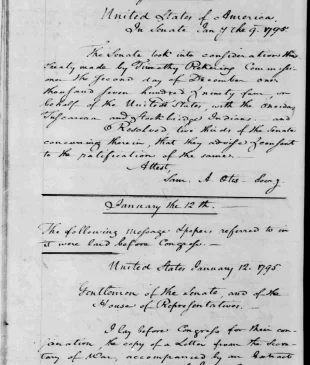 United States of America.
In Senate Jany the 9. 1795
The Senate took into consideration the
treaty made by Timothy Pickering Commissi-
oner the second day of December one
thousand seven hundred & ninety four, on
behalf of the United States, with the Oneida,
Tuscarora and Stockbridge Indians — and
Resolved, two thirds of the Senate
concurring therein, that they advise & consent
to the ratification of the same.
Attest,
Sam. A. Otis — Secy.
January the 12th. —
The following Message & papers referred to in
it were laid before Congress. —
United States January 12. 1795
Gentlemen of the Senate, and of the
House of Representatives. —
I lay before Congress for their con-
sideration, the copy of a Letter from the Secre-
tary of War, accompanied by an Extract